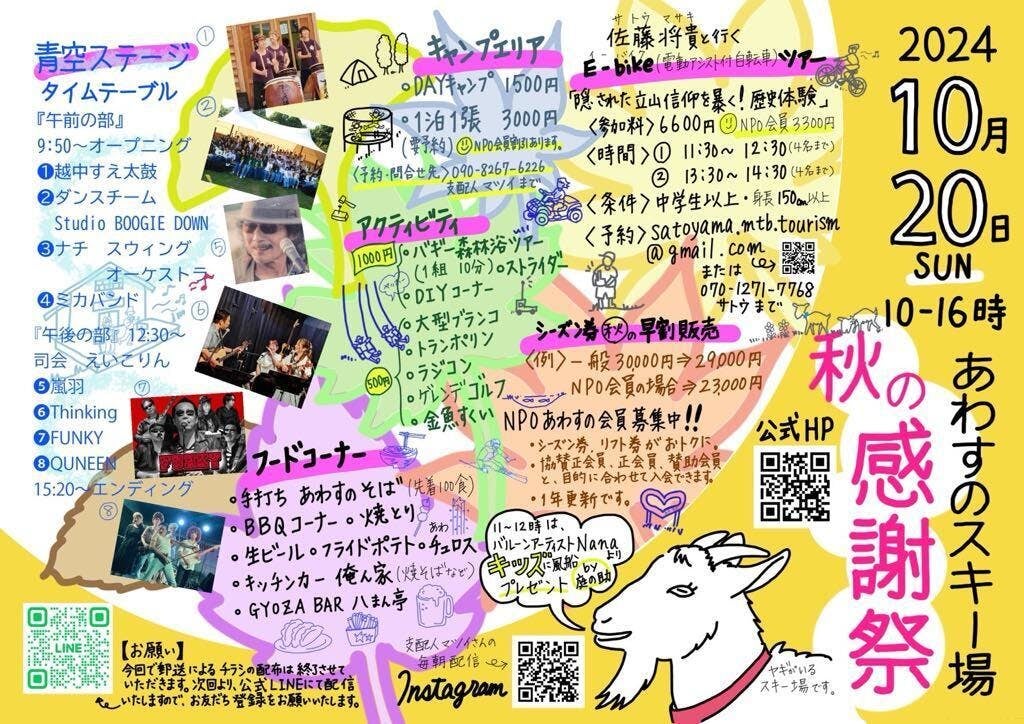 2024
10月
20日
SUN
10-16時
あわすのスキー場
秋の感謝祭
公式HP
青空ステージ
タイムテーブル
『午前の部』
9:50〜オープニング
❶越中すえ太鼓
❷ダンスチーム
Studio BOOGIE DOWN
❸ナチ スウィング
オーケストラ
❹ミカバンド
『午後の部』12:30〜
司会 えいこりん
❺嵐羽
❻Thinking
❼FUNKY
❽QUNEEN
15:20〜エンディング
①
②
⑤
⑥
⑦
⑧
キャンプエリア
・DAYキャンプ 1500円
・1泊1張 3000円
(要予約) NPO会員割引あります。
〈予約・問合せ先〉090-8267-6226
支配人マツイまで
アクティビティ
1000円
・バギー森林浴ツアー
(1組 10分)・ストライダー
・DIYコーナー
・大型ブランコ
・トランポリン
500円
・ラジコン
・ゲレンデゴルフ
・金魚すくい
フードコーナー
・手打ち あわすのそば(先着100食)
・BBQコーナー・焼とり
・生ビール・フライドポテト・チュロス
・キッチンカー 俺ん家(焼そばなど)
・GYOZA BAR 八まん亭
サトウ マサキ
佐藤 将貴と行く
E-bike(電動アシスト付自転車)ツアー
「隠された立山信仰を暴く!歴史体験」
〈参加料〉6600円 NPO会員3300円
〈時間〉① 11:30〜12:30(4名まで)
② 13:30〜14:30(4名まで)
〈条件〉中学生以上・身長150cm以上
〈予約〉satoyama.mtb.tourism
@gmail.com
または
070-1271-7768
サトウまで
シーズン券㊙の早割販売
〈例〉一般 30,000円⇒29,000円
NPO会員の場合⇒23,000円
NPOあわすの会員募集中!!
・シーズン券、リフト券がおトクに。
・協賛正会員、正会員、賛助会員
と、目的に合わせて入会できます。
・1年更新です。
11〜12時は、
バルーンアーティストNanaより
キッズに風船
プレゼント by庭の助
ヤギがいる
スキー場です。
支配人マツイさんの
毎朝配信
Instagram
LINE
【お願い】
今回で郵送によるチラシの配布は終了させて
いただきます。次回より、公式LINEにて配信
いたしますので、お友だち登録をお願いいたします。